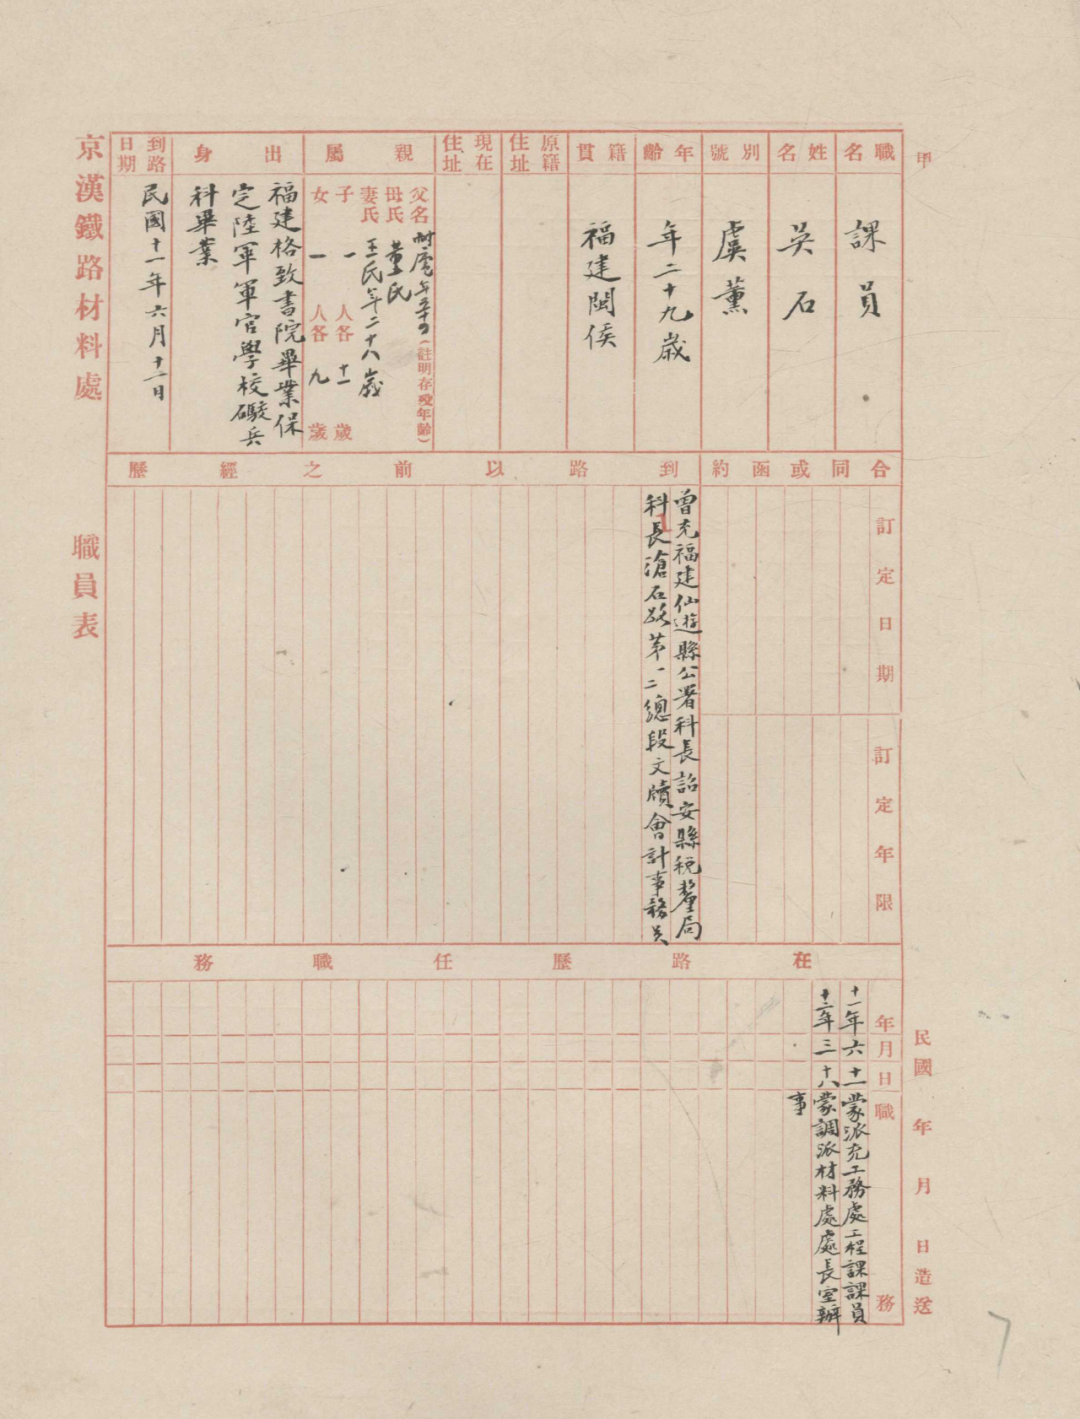 甲
職名
課員
姓名
吳石
別號
虞薰
年齡
年二十九歲
籍貫
福建閩侯
原籍住址
現在住址
親屬
父名 年五十四(註明存歿年齡)
母氏 董氏
妻氏 王氏年二十八歲
子 一 人各 十一 歲
女 一 人各 九 歲
出身
福建格致書院畢業保
定陸軍軍官學校礮兵
科畢業
到路日期
民國十一年六月十二日
合同或函約
訂定日期
訂定年限
到路以前之經歷
曾充福建仙遊縣公署科長詔安縣稅釐局
科長滄石路第一二總段文牘會計事務員
在路歷任職務
年月日職務
十一年六十一蒙派充工務處工程課課員
十三年三十八蒙調派材料處處長室辦
事
民國 年 月 日造送
京漢鐵路材料處 職員表
7